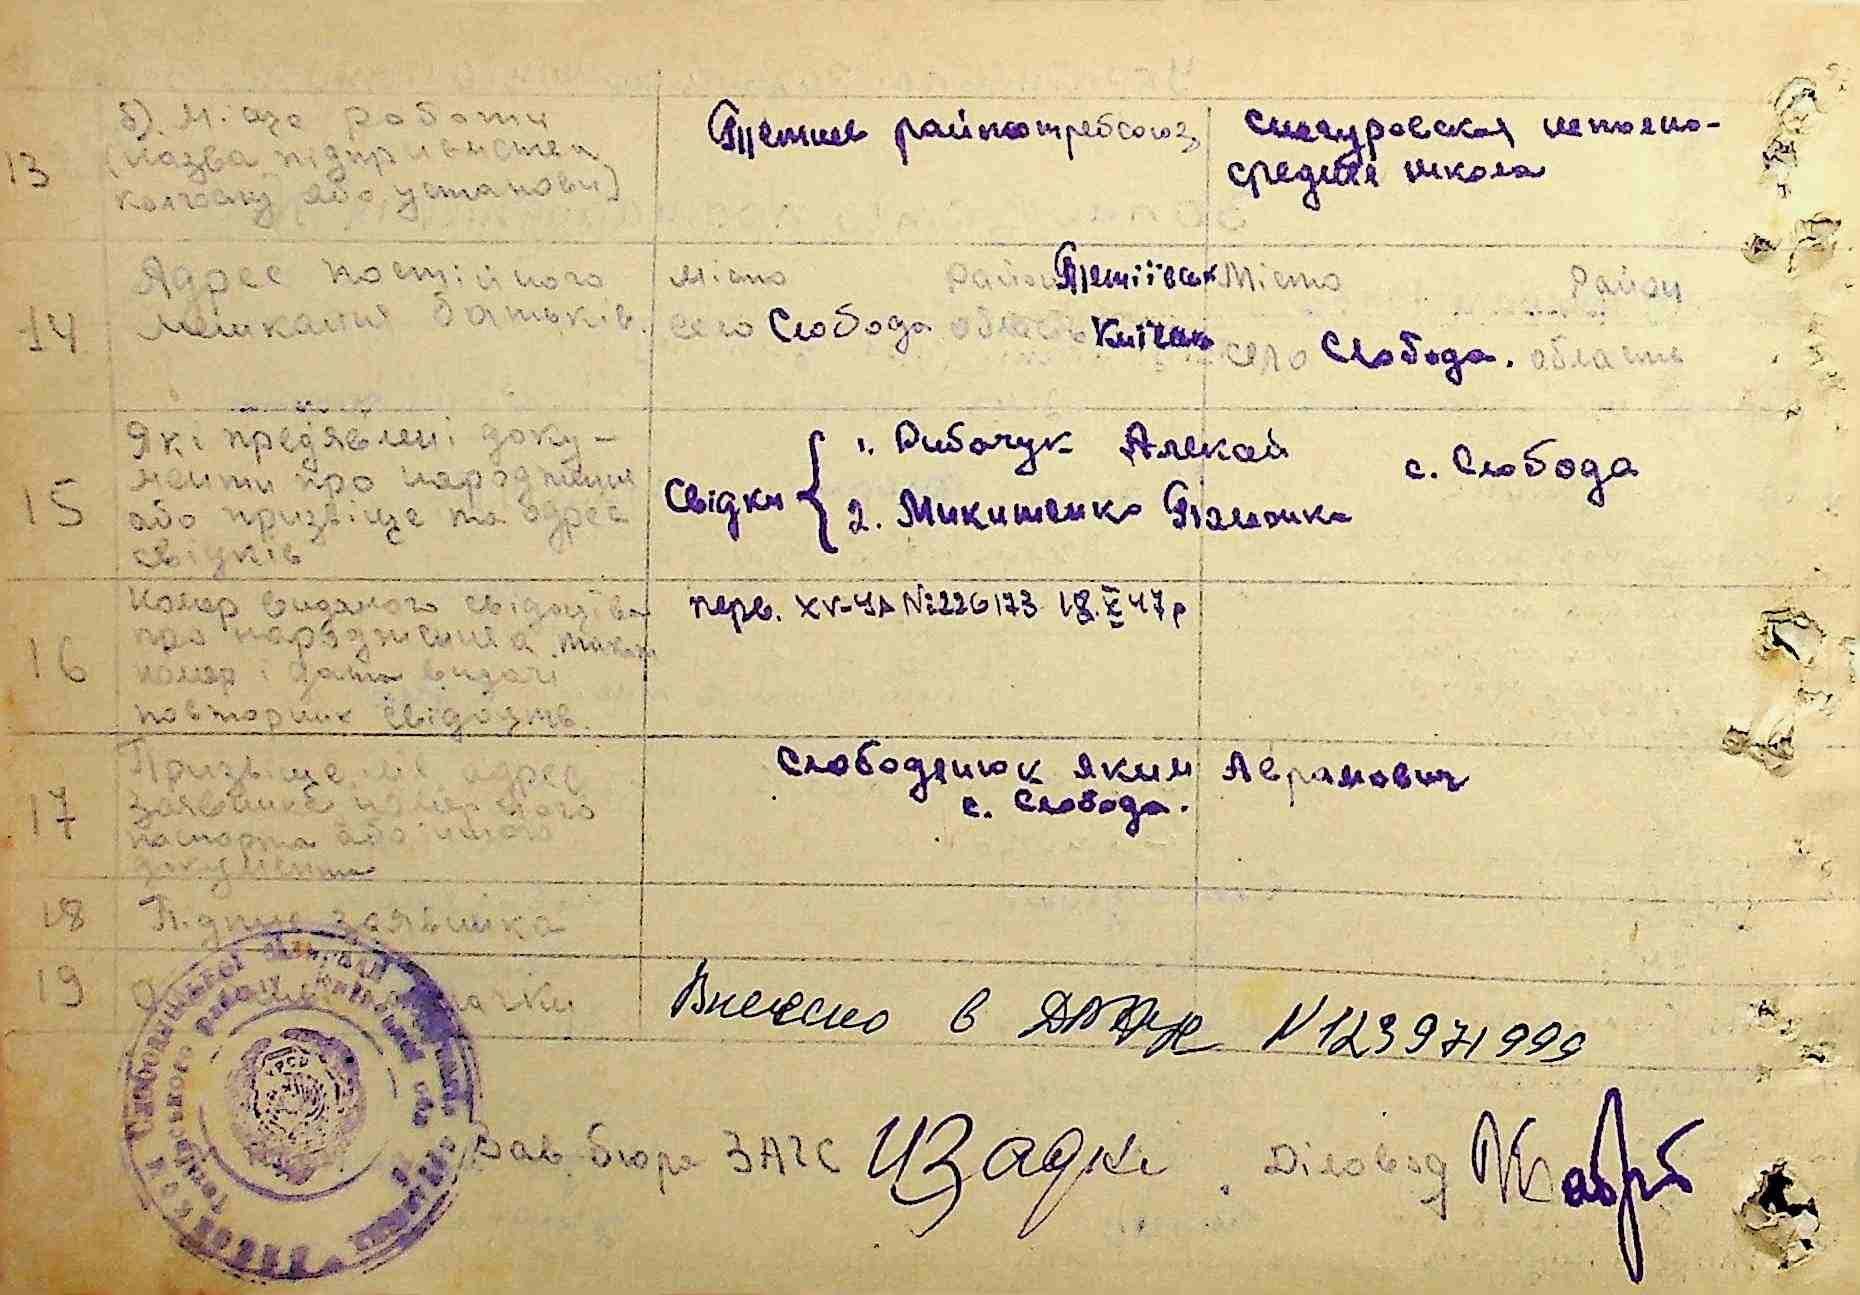 13
б). Місце роботи
(назва підприємства,
колгоспу або установи)
Тетиев райпотребсоюз
неполно-
средняя школа
14
Адрес постійного
мешкання батьків.
Місто Район Тетіївськ
село Слобода область Київськ
Місто Район
село Слобода. область
15
Які предявлені доку-
менти про народження
або призвіще та адрес
свідків
Свідки
1. Рибачук
2. Микитенко
с. Слобода
16
Номер виданого свідоцтва
про народження, також
номер і дата видачі
повторних свідоцтв.
перв. XV-ЧА №226173 18.X 47р
17
Призвіще, імя, адрес
заявника номер його
паспорта або іншого
документа
Слободянюк Яким Аврамович
с. Слобода.
18
Підпис заявника
19
Внесено в № 123971999
Зав. бюро ЗАГС
Діловод
УРСР